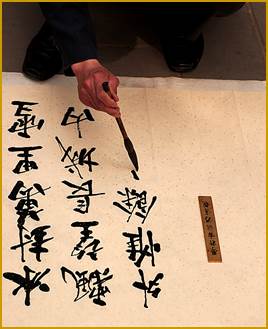 冰封萬里雪
飄望長城内
外惟餘